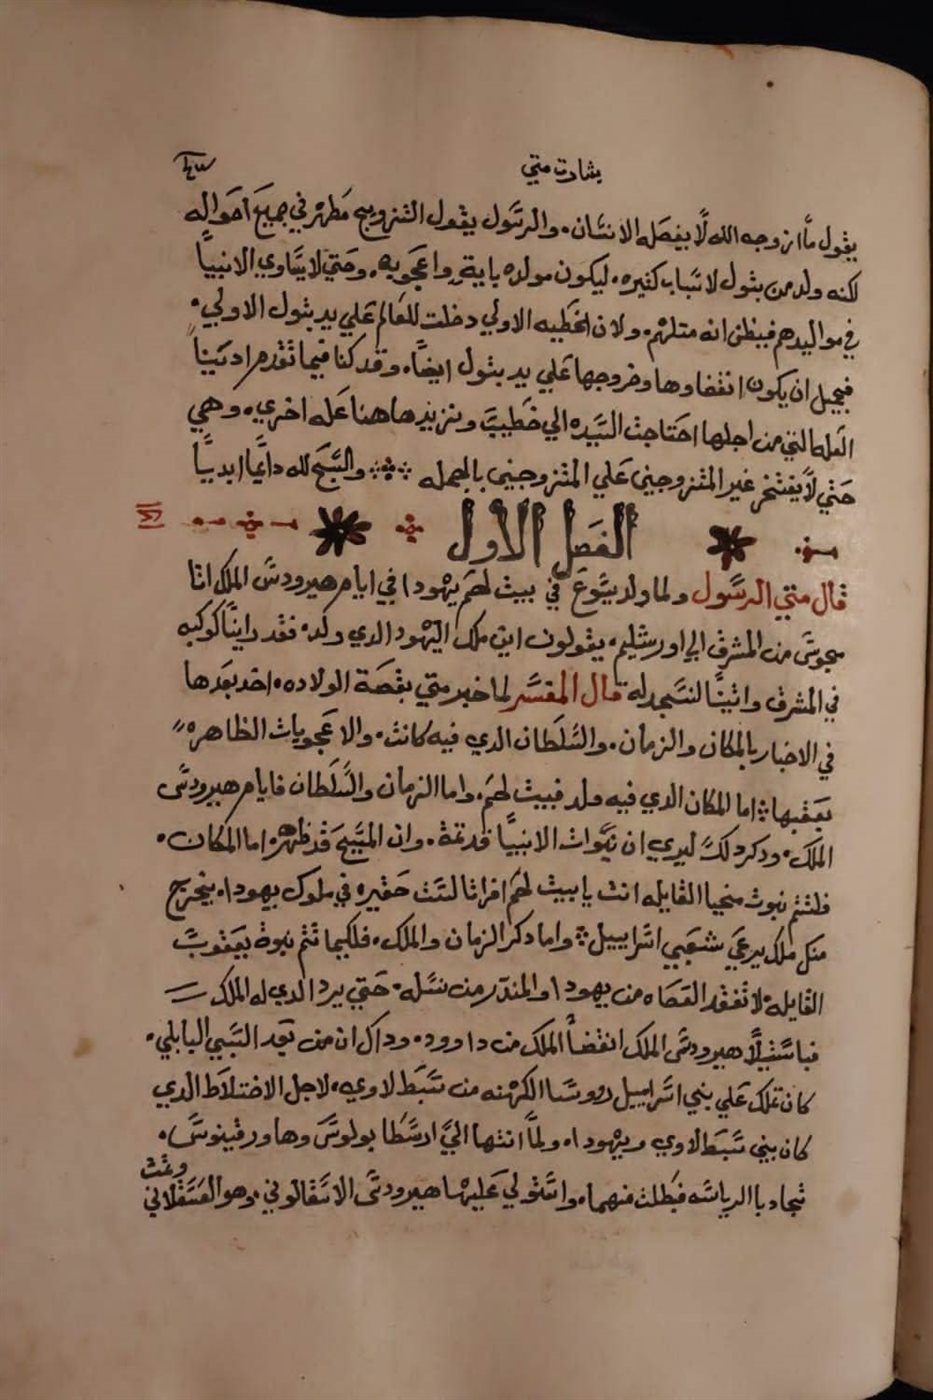 بشارت متي
يقول ما ازوجه الله لا يفصله الانسان. والرسول يقول التزويج مطهر في جميع احواله
لكنه ولد من بتول لاسباب كثيره. ليكون مولده باية واعجوبه. وحتي لا يساوي الانبيا
في مواليدهم فيظن انه مثلهم. ولان الخطيه الاولي دخلت للعالم علي يد بتول الاولي.
فيجمل ان يكون انتفاوها وخروجها علي يد بتول ايضا. وقد كنا فيما تقدم ادينا
العله التي من اجلها احتاجت السيده الي خطيب ونزيدها هنا عله اخري. وهي
حتي لا يفتخر غير المتزوجين علي المتزوجين بالجمله والسبح لله دايما ابديا
الفصل الاول
قال متي الرسول ولما ولد يسوع في بيت لحم يهودا في ايام هيرودس الملك اتا
مجوس من المشرق الي اورشليم. يقولون اين ملك اليهود الدي ولد. فقد راينا كوكبه
في المشرق واتينا لنسجد له قال المفسر لما خبر متي بقصة الولاده. اخد بعدها
في الاخبار بالمكان والزمان. والسلطان الدي فيه كانت. والاعجوبات الظاهره
بعقبها اما المكان الدي فيه ولد فبيت لحم. واما الزمان والسلطان فايام هيرودس
الملك. ودكر دلك ليري ان نبوات الانبيا قد تمة. وان المسيح قد ظهر. اما المكان.
فلتتم نبوت ميخيا القايله انت يا بيت لحم افراتا لست حقيره في ملوك يهودا. يخرج
منك ملك يرعي شعبي اسراييل واما دكر الزمان والملك. فلكيما تتم نبوة يعقوب
القايله. لا تفقد العصاه من يهودا والمندر من نسله. حتي يرد الدي له الملك
فباستيلا هيرودس الملك انتفضا الملك من داوود. وداك ان من بعد السبي البابلي.
كان تملك علي بني اسراييل روسا الكهنه من سبط لاوي. لاجل الاختلاط الدي
كان بين سبط لاوي ويهودا. ولما انتها الي ارسطابولوس وهاورقينوس.
تجادبا الرياسه فبطلت منهما. واستولي عليها هيرودس الاسقالوني وهو العسقلاني
وغت